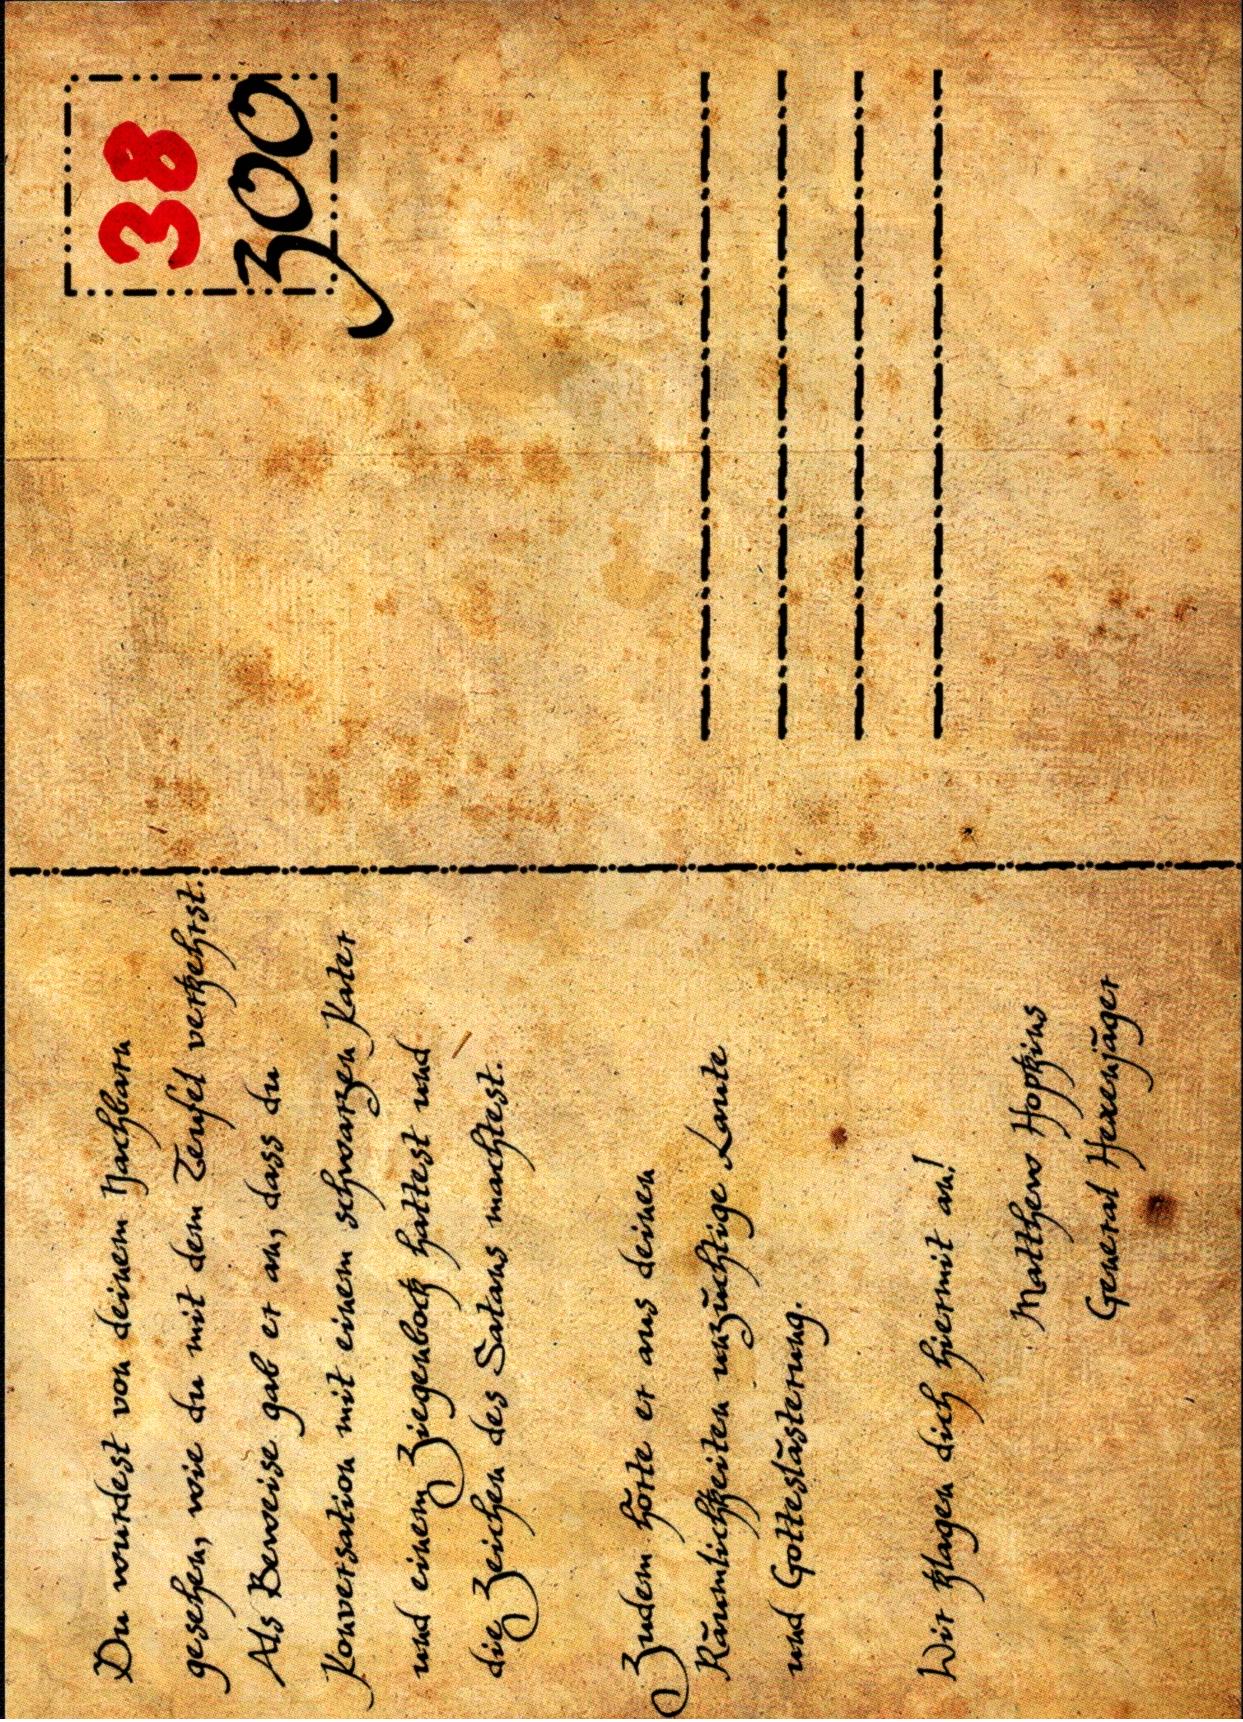 Du wurdest von deinem Nachbarn
gesehen, wie du mit dem Teufel verkehrst.
Als Beweise gab er an, dass du
Konversation mit einem schwarzen Kater
und einem Ziegenbock hattest und
die Zeichen des Satans machtest.
Zudem hörte er aus deinen
Räumlichkeiten unzüchtige Laute
und Gotteslästerung.
Wir klagen dich hiermit an!
Matthew Hopkins
General Hexenjäger
38
300